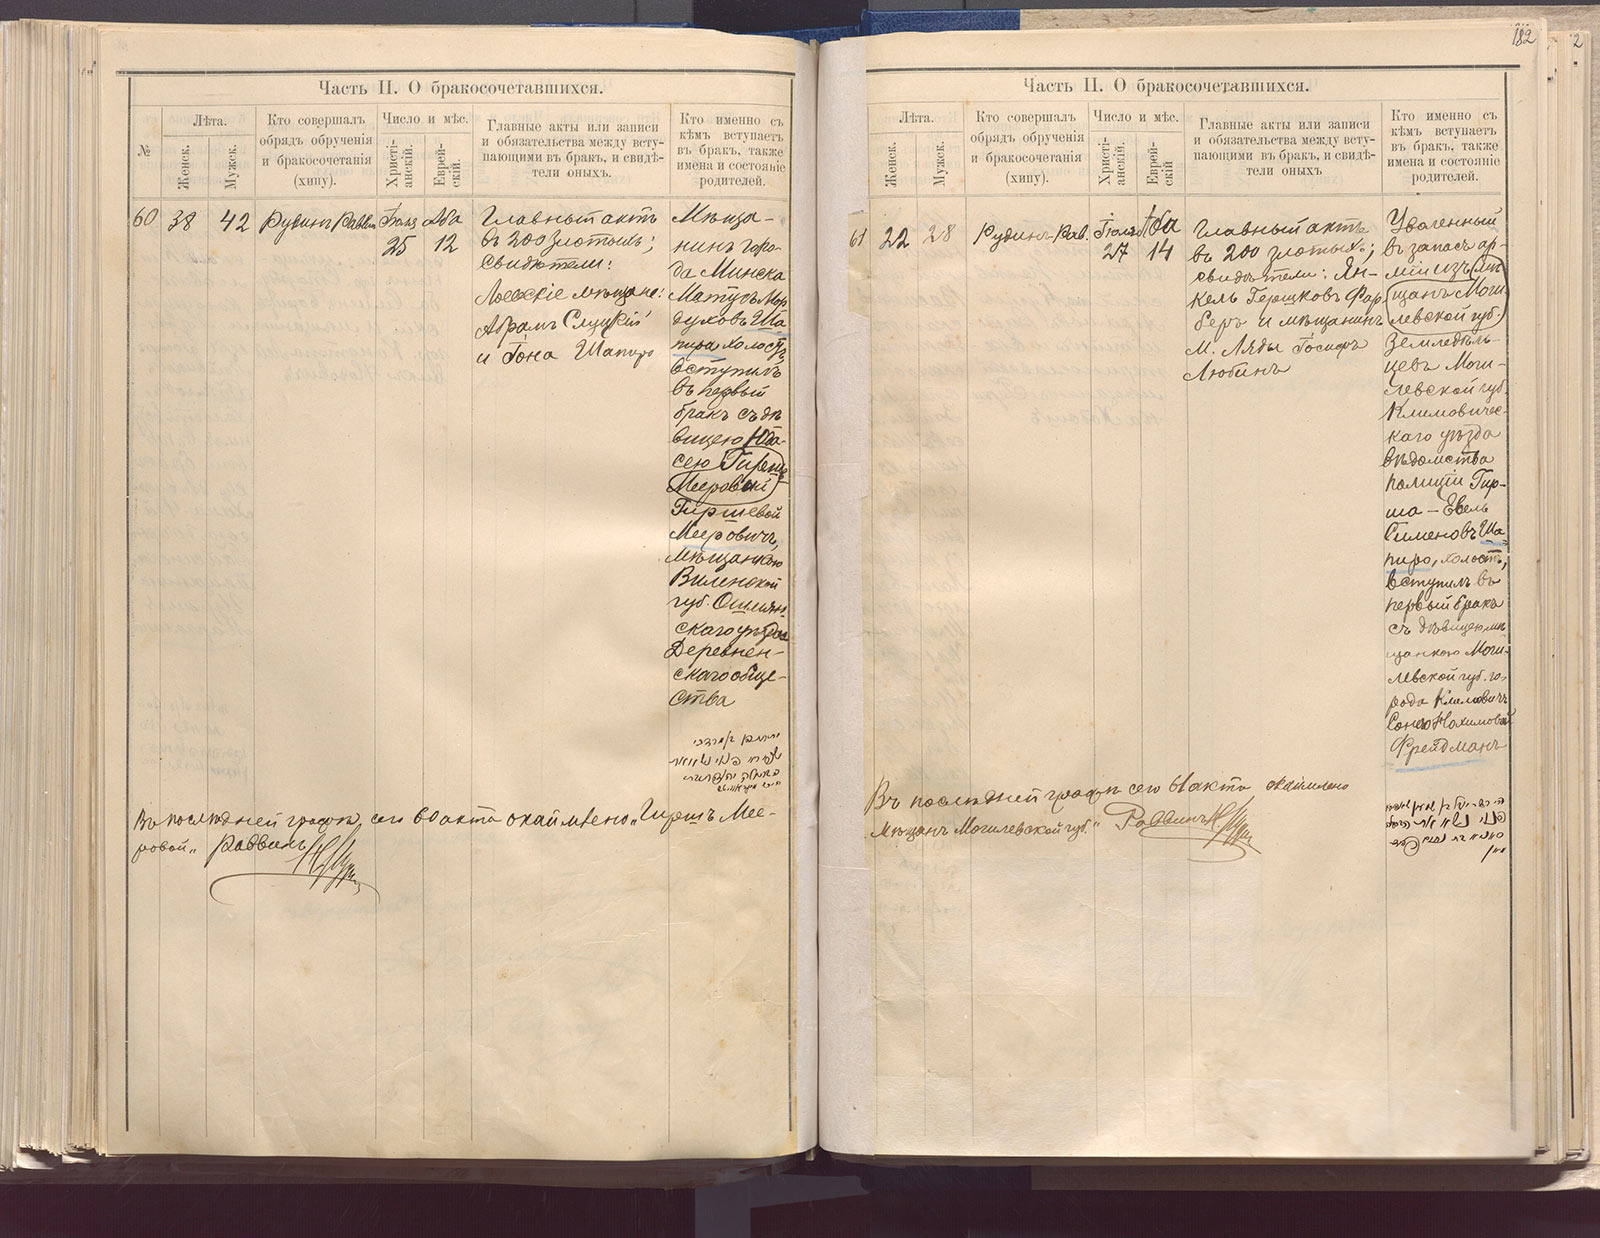 Часть II. О бракосочетавшихся.
№
Лѣта.
Женск.
Мужск.
Кто совершалъ
обрядъ обрученія
и бракосочетанія
(хипу).
Число и мѣс.
Христі-
анскій.
Еврей-
скій.
Главные акты или записи
и обязательства между всту-
пающими въ бракъ, и свидѣ-
тели оныхъ.
Кто именно съ
кѣмъ вступаетъ
въ бракъ, также
имена и состояніе
родителей.
60
38
42
Рубинъ Раввин
Іюля
25
Аба
12
Главный актъ
въ 200 злотыхъ;
свидѣтели:
мѣщане:
Абрамъ Слуцкій
и Іона Шапиро
Мѣща-
нинъ горо-
да Минска
Матусъ Мор
духовъ Ша
пиро, холостъ
вступилъ
въ первый
бракъ съ дѣ
вицею
сею Гирше
Мееровой
Гиршевой
Мееровичъ,
мѣщанкою
Виленской
губ. Ошмян
скаго уѣзда
Деревнен-
скаго обще-
ства
Въ послѣдней графѣ сего 60 акта окаймлено „Гиршъ Мее-
ровой„ Раввинъ
182
Часть II. О бракосочетавшихся.
Лѣта.
Женск.
Мужск.
Кто совершалъ
обрядъ обрученія
и бракосочетанія
(хипу).
Число и мѣс.
Христі-
анскій.
Еврей-
скій.
Главные акты или записи
и обязательства между всту-
пающими въ бракъ, и свидѣ-
тели оныхъ
Кто именно съ
кѣмъ вступаетъ
въ бракъ, также
имена и состояніе
родителей.
61
22
28
Рубинъ Рав.
Іюля
27
Аба
14
Главный актъ
въ 200 злотыхъ;
свидѣтели: Ян-
кель Гершковъ Фар
беръ и мѣщанинъ
м. Ляды Іосифъ
Любинъ
Уволенный
въ запасъ ар-
міи изъ мѣ
щанъ Моги
левской губ.
Земледѣль-
цевъ Моги-
левской губ.
Климовичес-
каго уѣзда
вѣдомства
полиціи Гир-
ша - Евель
Сименовъ Ша
пиро, холостъ,
вступилъ въ
первый бракъ
съ дѣвицею мѣ
щанкою Моги-
левской губ. го-
рода Климовичъ
Сонею Нохимовой
Фрейдманъ
Въ послѣдней графѣ сего 61 акта окаймлено
„Мѣщанъ Могилевской губ.„ Раввинъ